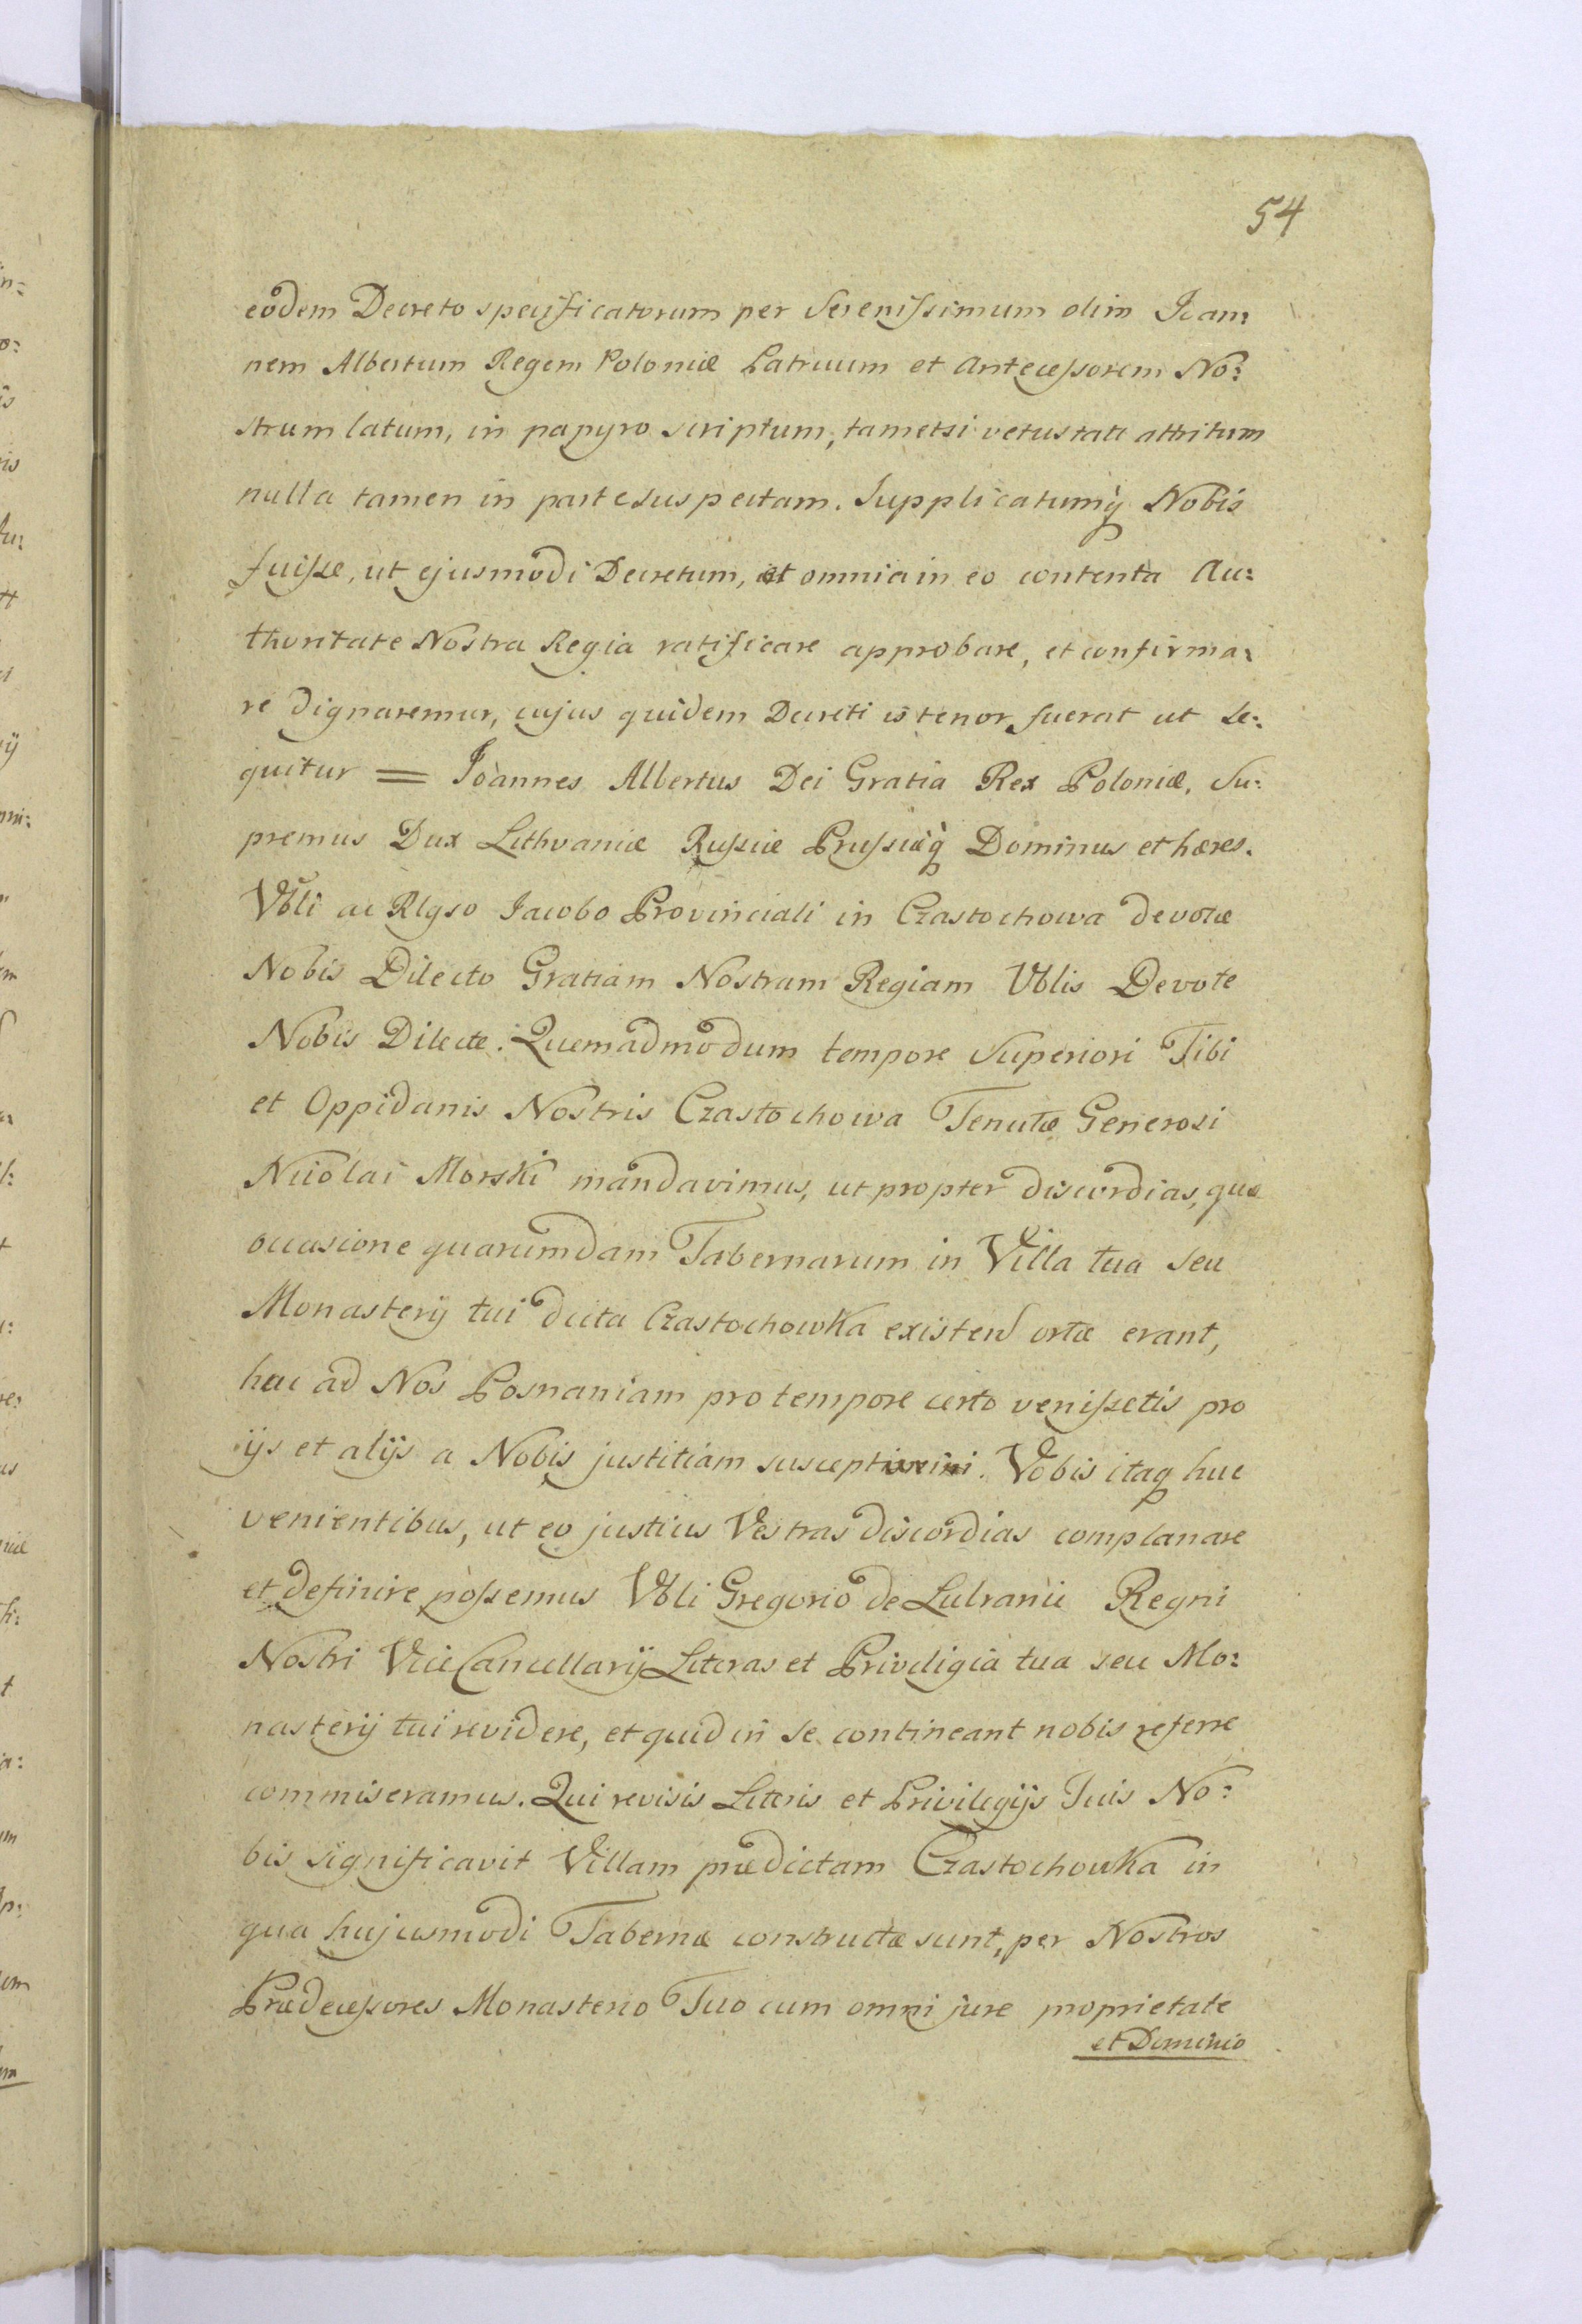 54
eodem Decreto specificatorum per Serenissimum olim Joan:
nem Albertum Regem Poloniæ Patruum et Antecessorem No:
strum latum, in papyro scriptum, tametsi vetustate attritum
nulla tamen in parte suspectam. Supplicatumq̀ Nobis
fuisse, ut ejusmodi Decretum, et omnia in eo contenta Au:
thoritate Nostra Regia ratificare approbare, et confirma:
re dignaremur, cujus quidem Decreti is tenor fuerat ut se:
quitur = Joannes Albertus Dei Gratia Rex Poloniæ, Su:
premus Dux Lithvaniæ Russiæ Prussiæq̀ Dominus et hæres.
Vbli ac Rlgso Jacobo Provinciali in Czastochowa devotæ
Nobis Dilecto Gratiam Nostram Regiam Vblis Devote
Nobis Dilecte. Quemadmodum tempore Superiori Tibi
et Oppidanis Nostris Czastochowa Tenutæ Generosi
Nicolai Morski mandavimus, ut propter discordias, quæ
occasione quarumdam Tabernarum in Villa tua seu
Monasterij tui dicta Czastochowka existen ortæ erant,
huc ad Nos Posnaniam pro tempore certo venissetis pro
ijs et alijs a Nobis justitiam suscepti. Vobis itaq huc
venientibus, ut eo justius Vestras discordias complanare
et definire possemus Vbli Gregorio de Lulranie Regni
Nostri ViceCancellarij Literas et Priviligia tua seu Mo:
nasterij tui revidere, et quid in se contineant nobis referre
commiseramus. Qui revisis Literis et Privilegijs Tuis No:
bis significavit Villam prædictam Czastochowka in
qua hujusmodi Tabernæ constructæ sunt, per Nostros
Prædecessores Monasterio Tuo cum omni jure proprietate
et Dominio